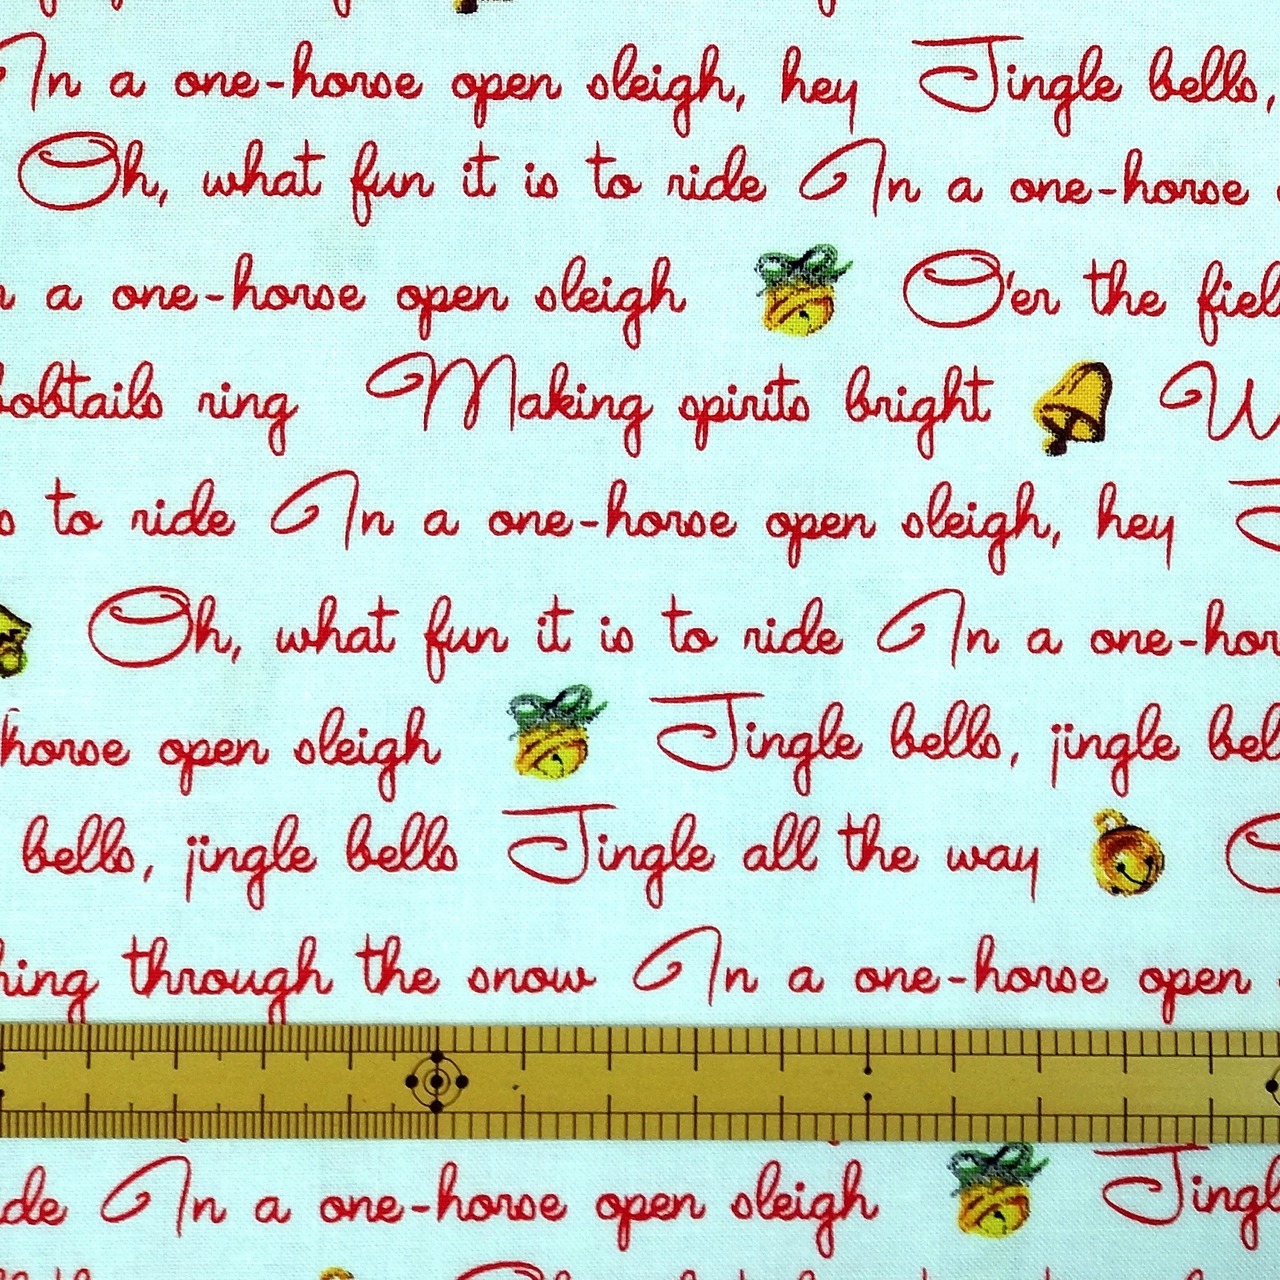 In a one-horse open sleigh, hey Jingle bells,
Oh, what fun it is to ride In a one-horse
a one-horse open sleigh O'er the
bobtails ring Making spirits bright
to ride In a one-horse open sleigh, hey
Oh, what fun it is to ride In a one-hor
horse open sleigh Jingle bells, jingle bel
bells, jingle bells Jingle all the way
hing through the snow In a one-horse open
de In a one-horse open sleigh Jingl